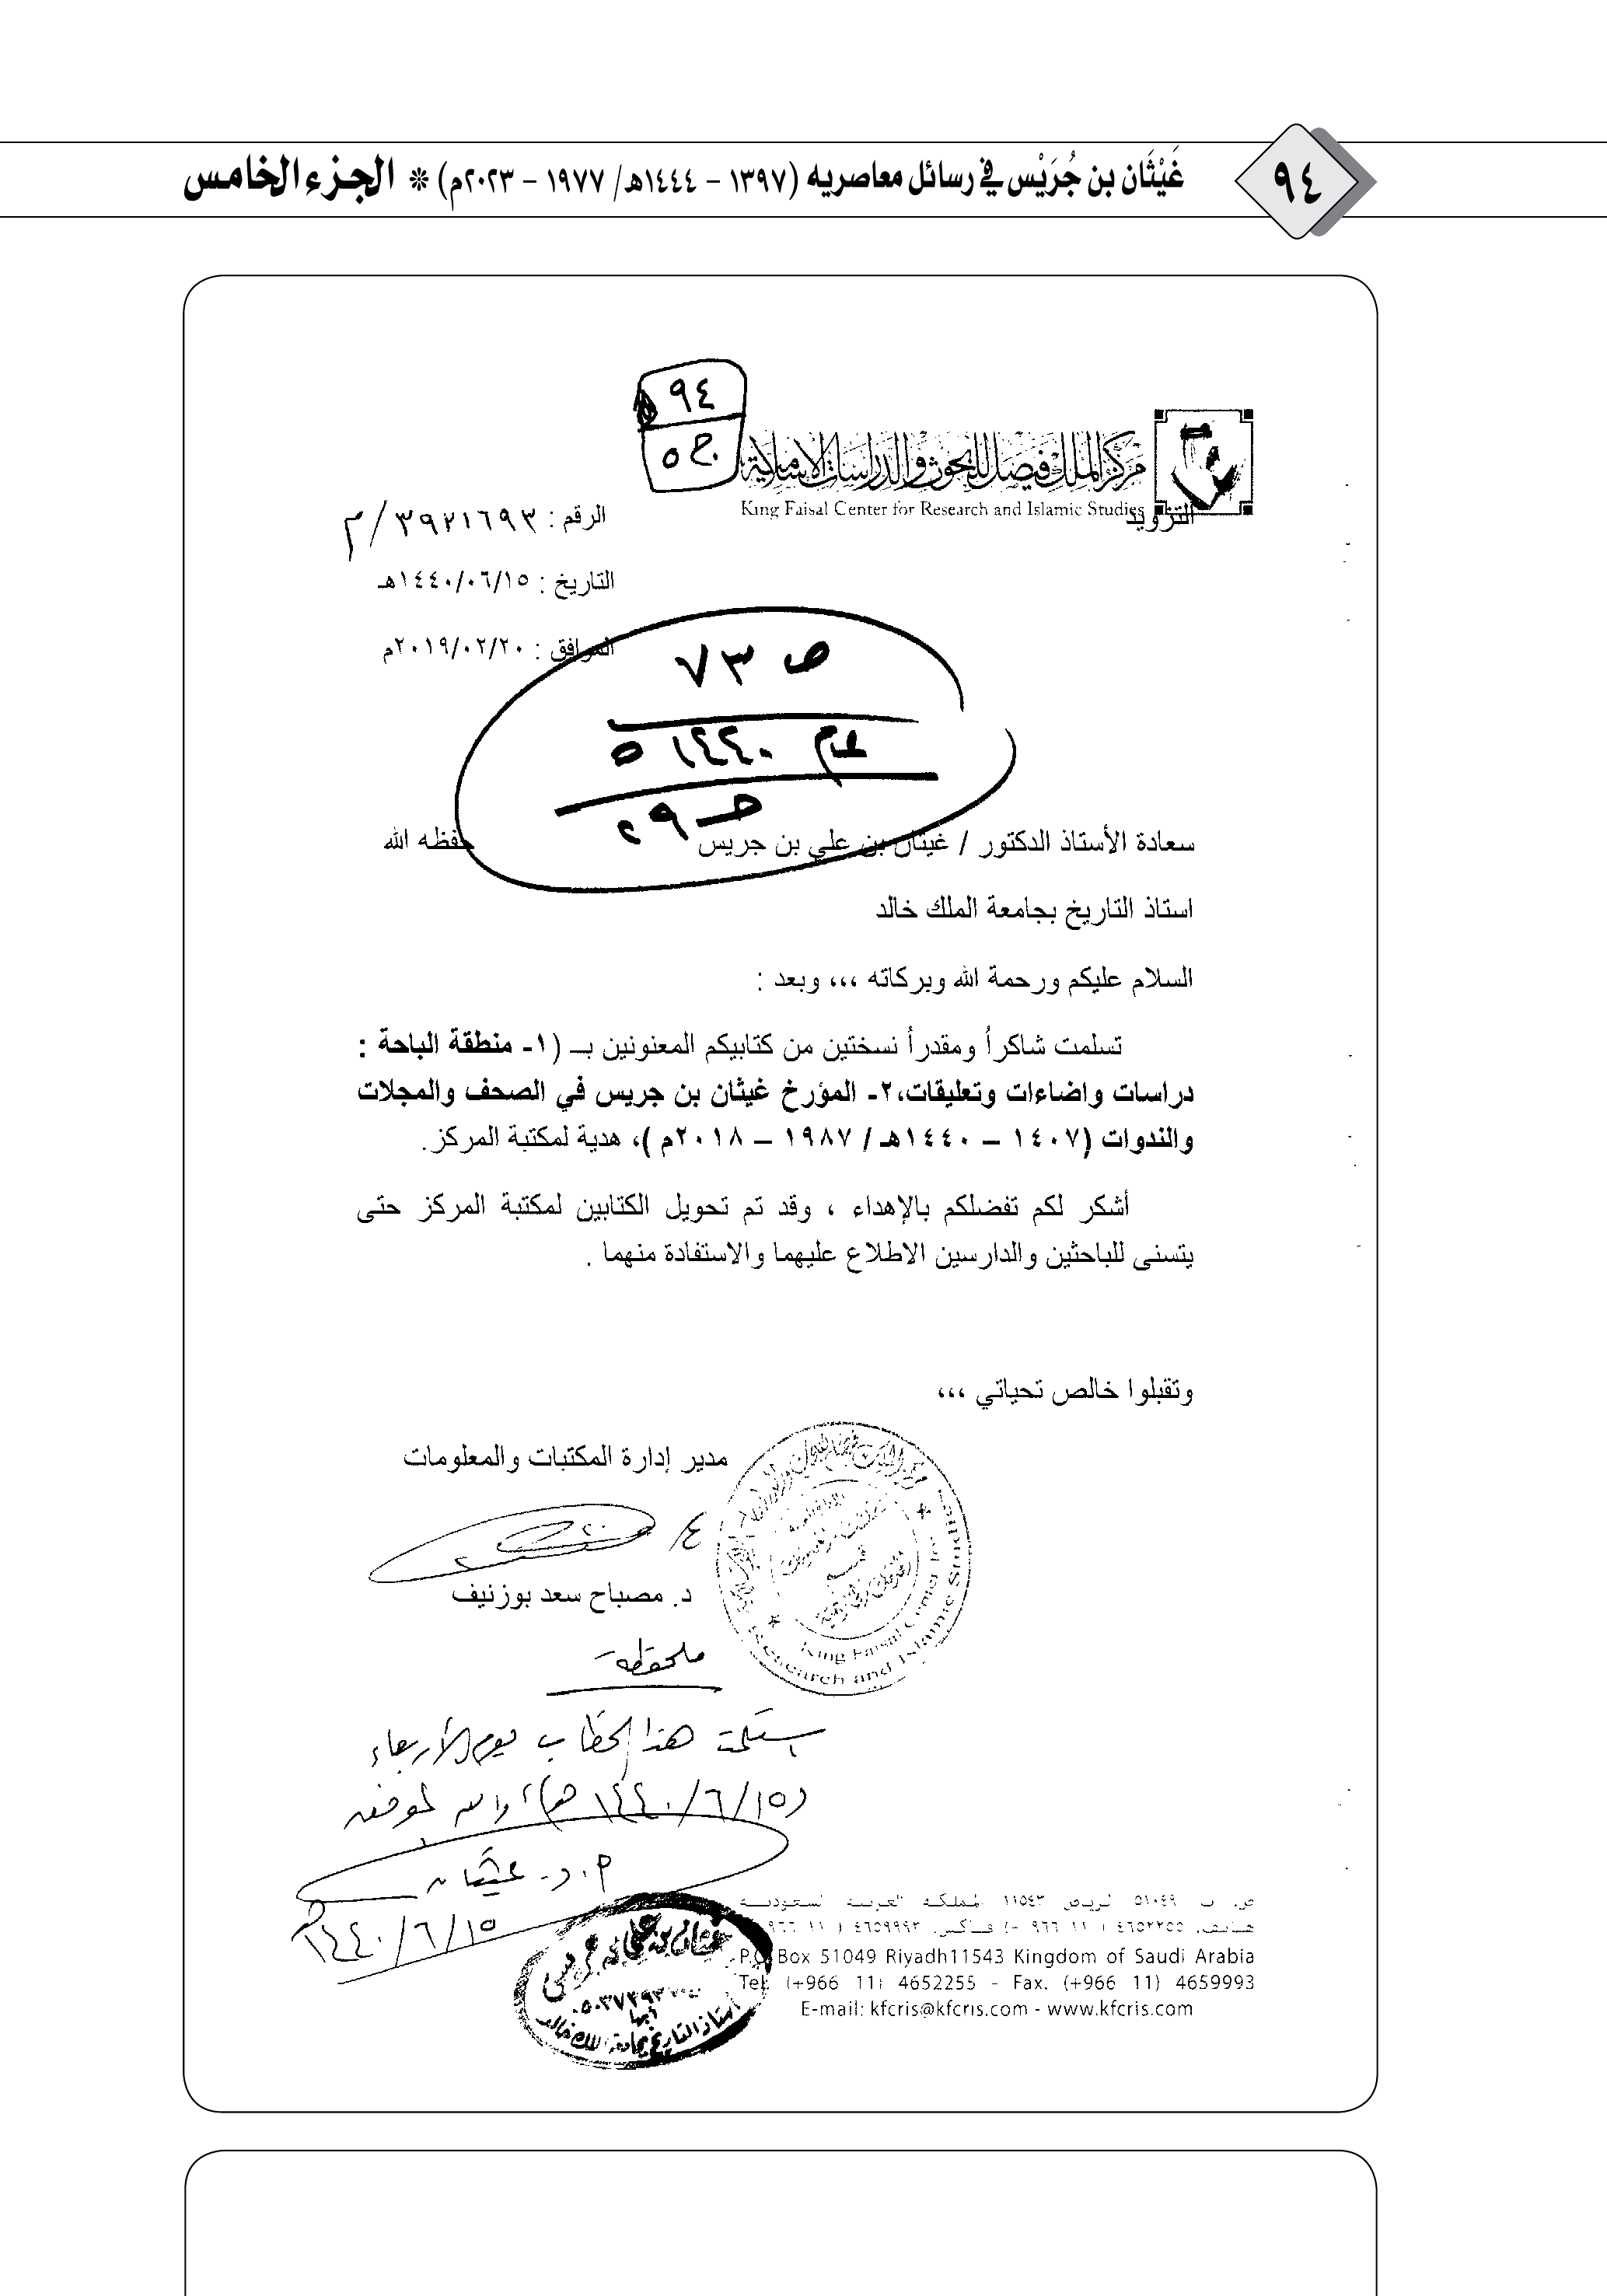 ٩٤
غَيْثَان بن جُرَيْس في رسائل معاصريه (١٣٩٧ – ١٤٤٤هـ/ ١٩٧٧ – ٢٠٢٣م) * الجزء الخامس
٩٤
ج٥
مركز الملك فيصل للبحوث والدراسات الإسلامية
King Faisal Center for Research and Islamic Studies
التزويد
الرقم : ٣٩٢١٦٩٣/م
التاريخ : ١٤٤٠/٠٦/١٥هـ
الموافق : ٢٠١٩/٠٢/٢٠م
ص ٧٣
عام ١٤٤٠هـ
سعادة الأستاذ الدكتور / غيثان بن علي بن جريس حفظه الله
استاذ التاريخ بجامعة الملك خالد
السلام عليكم ورحمة الله وبركاته ،،، وبعد :
تسلمت شاكراً ومقدراً نسختين من كتابيكم المعنونين بـ (١- منطقة الباحة :
دراسات واضاءات وتعليقات،٢- المؤرخ غيثان بن جريس في الصحف والمجلات
والندوات (١٤٠٧ – ١٤٤٠هـ / ١٩٨٧ – ٢٠١٨م )، هدية لمكتبة المركز.
أشكر لكم تفضلكم بالإهداء ، وقد تم تحويل الكتابين لمكتبة المركز حتى
يتسنى للباحثين والدارسين الاطلاع عليهما والاستفادة منهما .
وتقبلوا خالص تحياتي ،،،
مدير إدارة المكتبات والمعلومات
د. مصباح سعد بوزنيف
King Faisal Center for Research and Islamic Studies
ملحوظة
استلمت هذا الخطاب يوم الأربعاء
(١٤٤٠/٦/١٥هـ)، والله الموفق
أ.د. غيثان
١٤٤٠/٦/١٥هـ
غيثان بن علي بن جريس
أبها
أستاذ التاريخ بجامعة الملك خالد
ص. ب ٥١٠٤٩ الرياض ١١٥٤٣ المملكة العربية السعودية
هاتف. ٤٦٥٢٢٥٥ ( ١١ ٩٦٦ +) فاكس. ٤٦٥٩٩٩٣ ( ١١ ٩٦٦
P.O Box 51049 Riyadh11543 Kingdom of Saudi Arabia
Tel. (+966 11) 4652255 - Fax. (+966 11) 4659993
E-mail: kfcris@kfcris.com - www.kfcris.com